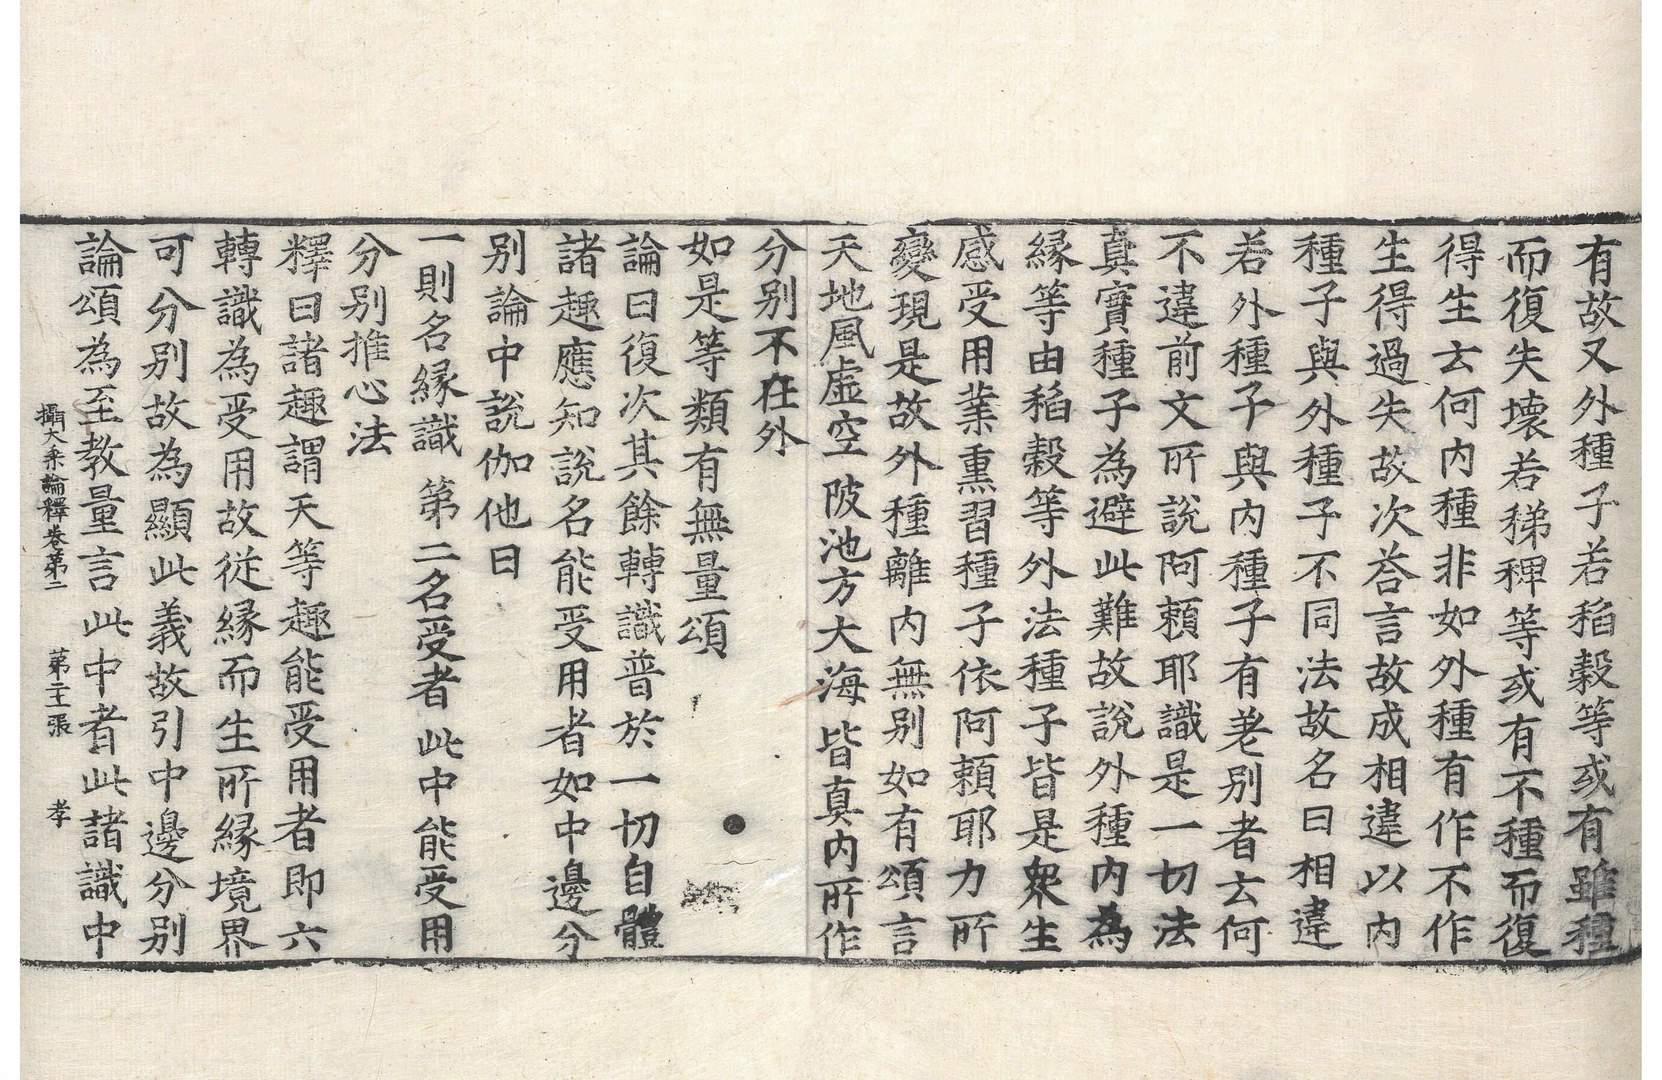 有故又外種子若稻穀等或有雖種
而復失壞若稊稗等或有不種而復
得生云何内種非如外種有作不作
生得過失故次荅言故成相違以内
種子與外種子不同法故名曰相違
若外種子與内種子有差别者云何
不違前文所說阿頼耶識是一切法
真實種子為避此難故說外種内為
縁等由稻穀等外法種子皆是衆生
感受用業熏習種子依阿頼耶力所
變現是故外種離内無别如有頌言
天地風虚空 陂池方大海 皆真内所作
分别不在外
如是等類有無量頌
論曰復次其餘轉識普於一切自體
諸趣應知說名能受用者如中邊分
别論中說伽他曰
一則名縁識 第二名受者 此中能受用
分别推心法
釋曰諸趣謂天等趣能受用者即六
轉識為受用故從縁而生所縁境界
可分别故為顯此義故引中邊分别
論頌為至教量言此中者此諸識中
攝大乗論釋卷第二 第二十張 孝